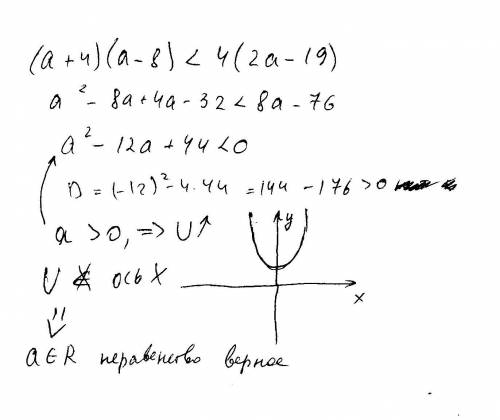 (a+4)(a-8) < 4(2a-19)
a² - 8a + 4a - 32 < 8a - 76
a² - 12a + 44 < 0
D = (-12)² - 4·44 = 144 - 176 > 0
a > 0, => U↑
U ось X
y
x
a ∈ R неравенство верное